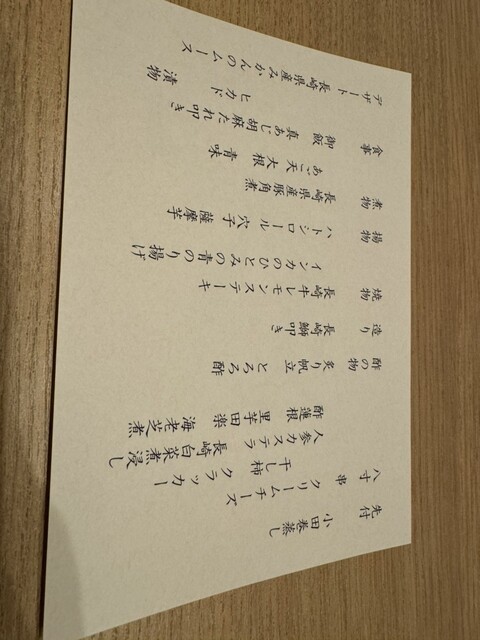 先付
小田巻蒸し
八寸
串 クリームチーズ
干し柿 クラッカー
長崎白菜煮浸し
人参カステラ
海老芝煮
里芋田楽
酢蓮根
酢の物
炙り帆立 とろろ酢
造り
長崎鰤叩き
焼物
長崎牛レモンステーキ
揚物
インカのひとみの青のり揚げ
ハトシロール 穴子 薩摩芋
煮物
長崎県産豚角煮
あご天 大根 青味
食事
御飯 真あじ胡麻たれ叩き
ヒカド
漬物
デザート
長崎県産みかんのムース